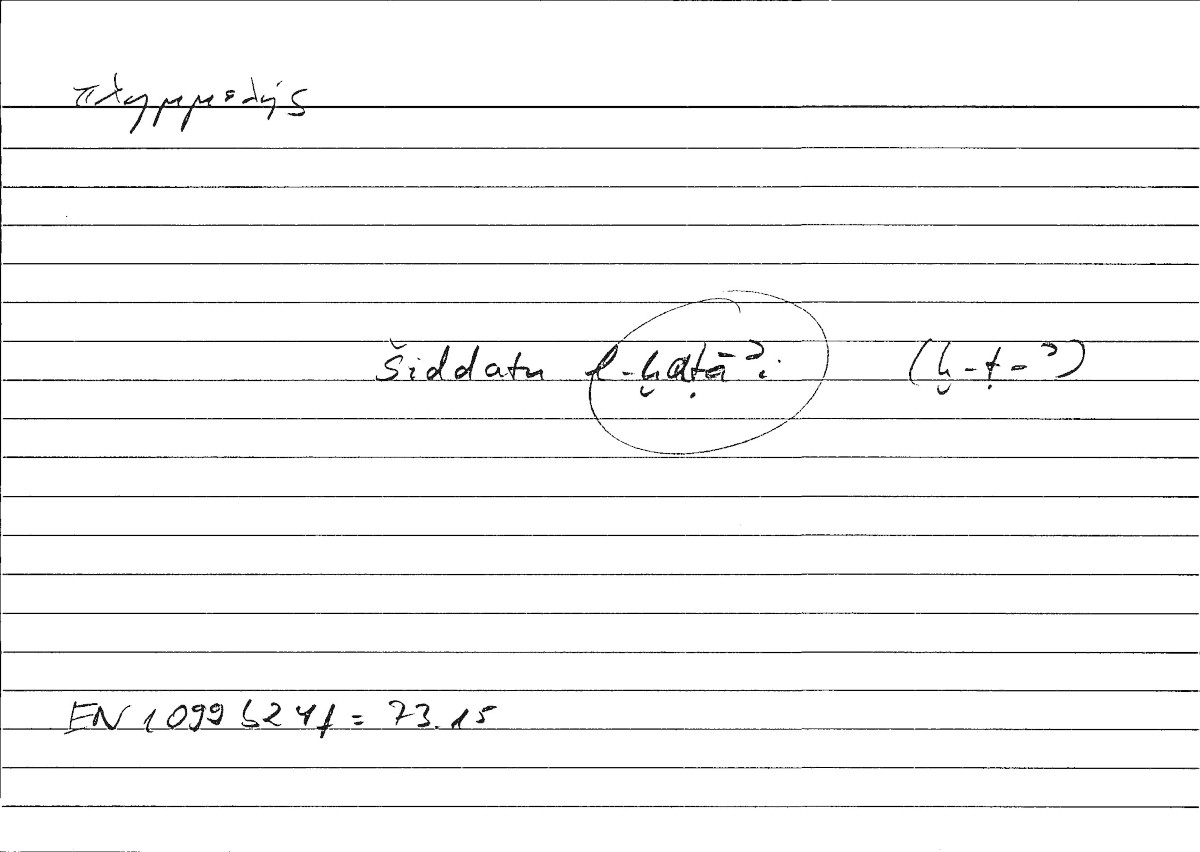 πλημμελής
šiddatu l-ḫaṭāʾi (ḫ-ṭ-ʾ)
EN 1099 b24f = 73.15